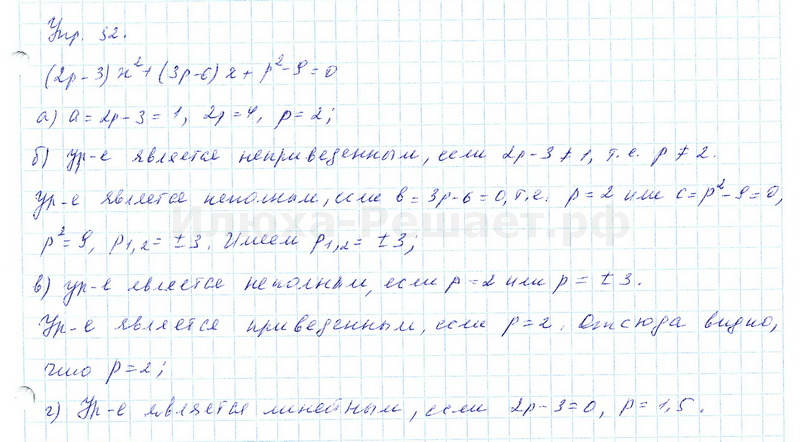 Упр. 32.
(2p-3)x²+(3p-6)x+p²-9=0
а) a=2p-3=1, 2p=4, p=2;
б) ур-е является неприведенным, если 2p-3≠1, т.е. p≠2.
Ур-е является неполным, если b=3p-6=0, т.е. p=2 или c=p²-9=0,
p²=9, p₁,₂=±3. Имеем p₁,₂=±3;
в) ур-е является неполным, если p=2 или p=±3.
Ур-е является приведенным, если p=2. Отсюда видно,
что p=2;
г) Ур-е является линейным, если 2p-3=0, p=1,5.
Илюха-Решает.рф